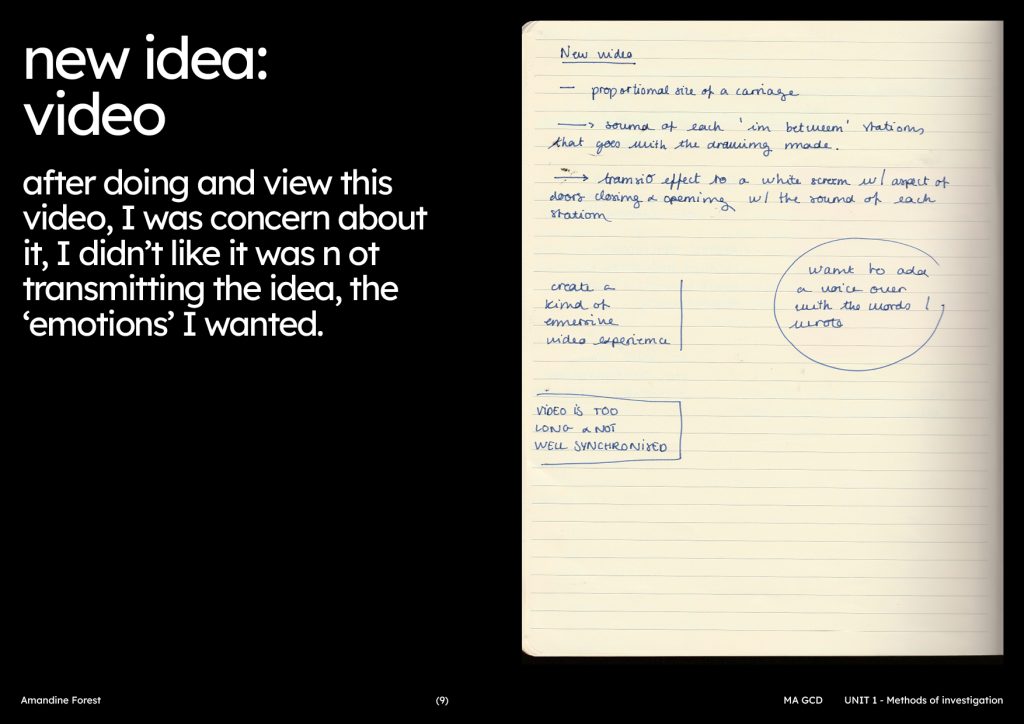 new idea:
video
after doing and view this
video, I was concern about
it, I didn’t like it was n ot
transmitting the idea, the
‘emotions’ I wanted.
New video
— proportional size of a carriage
→ sound of each 'im between' stations
that goes with the drawing made.
→ transi effect to a white screen w/ aspect of
doors closing & opening w/ the sound of each
station
create a
kind of
emersive
video experience
want to add
a voice over
with the words I
wrote
VIDEO IS TOO
LONG & NOT
WELL SYNCHRONISED
Amandine Forest
(9)
MA GCD
UNIT 1 - Methods of investigation